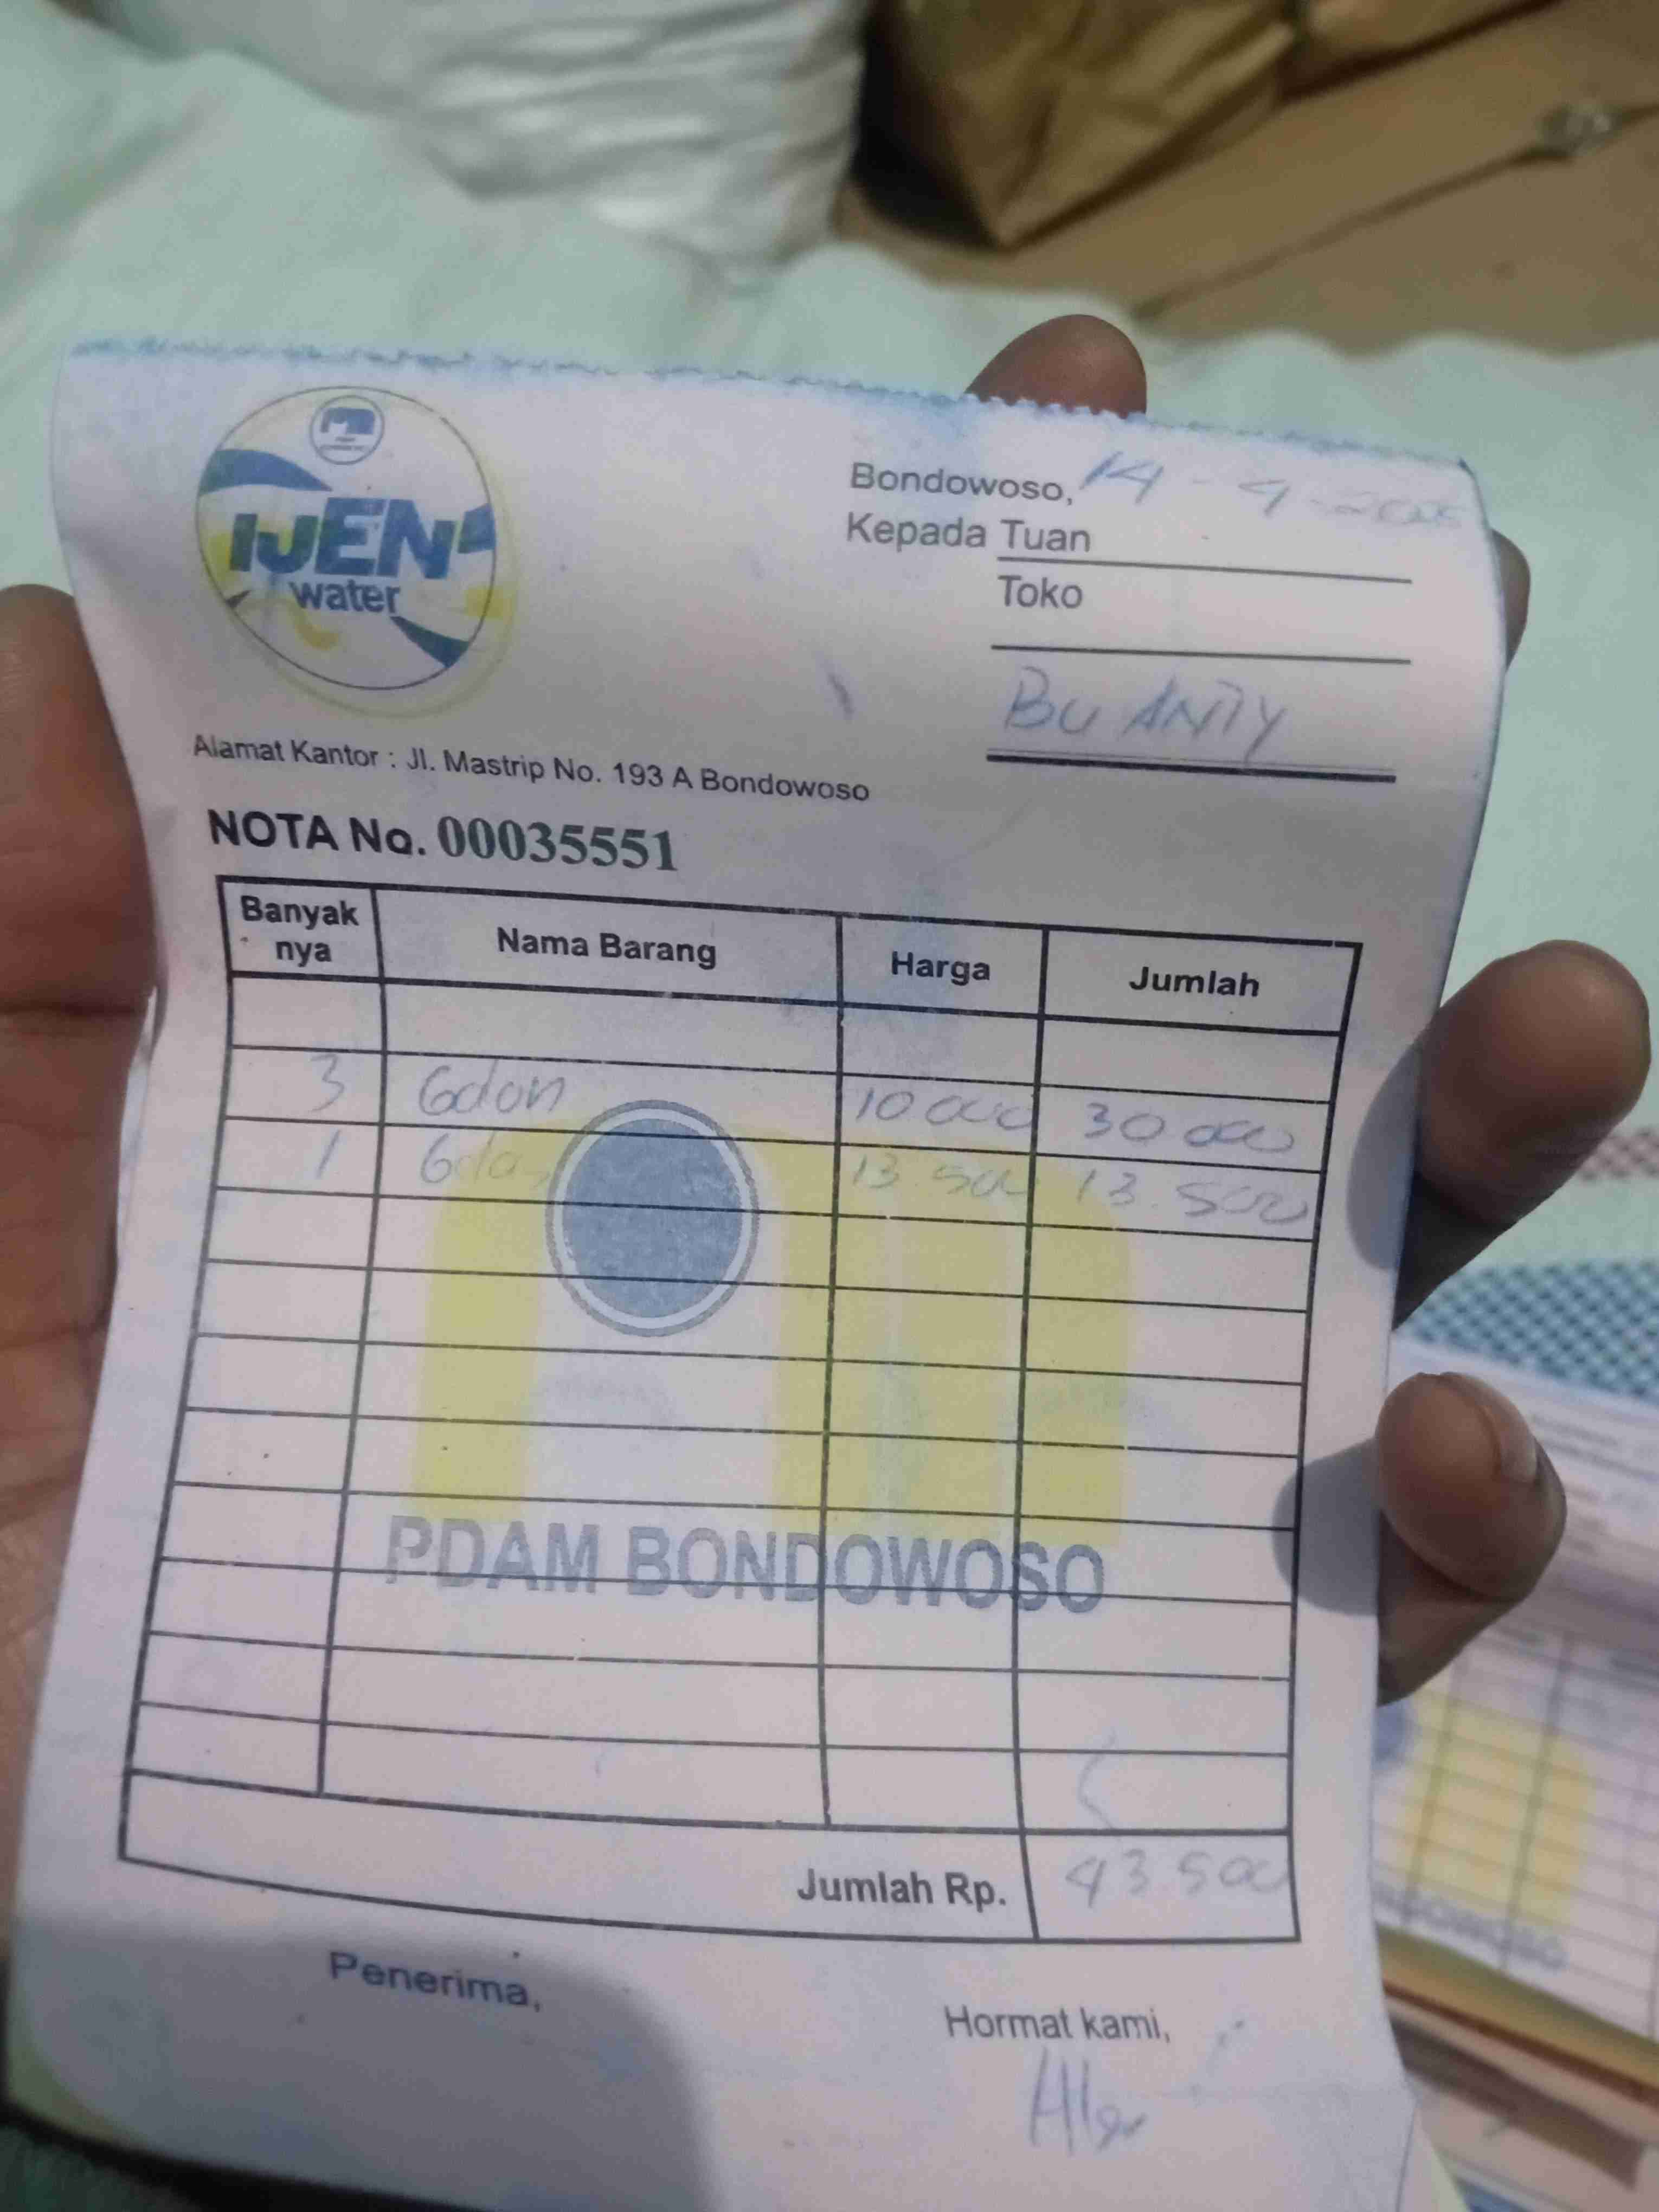 IJEN
water
Bondowoso, 14-9-2025
Kepada Tuan
Toko
BU ANTY
Alamat Kantor : Jl. Mastrip No. 193 A Bondowoso
NOTA No. 00035551
Banyak nya Nama Barang Harga Jumlah
3 Gdon 10 000 30 000
1 13 500 13.500
PDAM BONDOWOSO
Jumlah Rp. 43 500
Penerima,
Hormat kami,